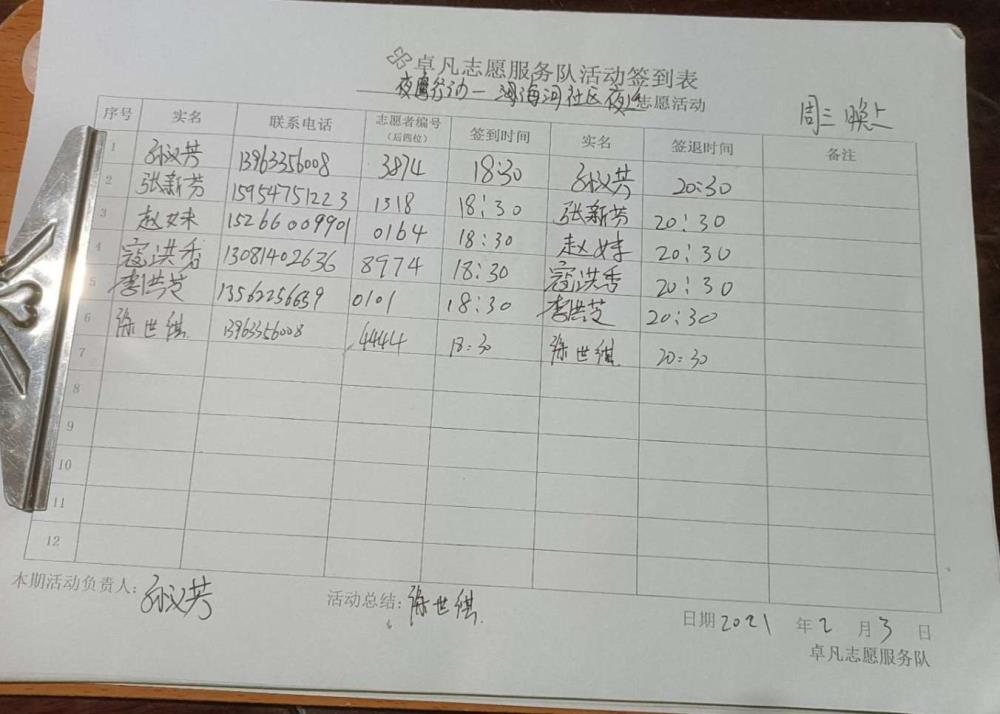 卓凡志愿服务队活动签到表
夜鹰行动一 河社区夜 志愿活动
周三晚上
序号 实名 联系电话 志愿者编号（后四位） 签到时间 实名 签退时间 备注
1 孙议芳 13963356008 3874 18:30 孙议芳 20:30
2 张新芳 15954751223 1318 18:30 张新芳 20:30
3 赵 15266009901 0164 18:30 赵 20:30
4 寇洪香 13081402636 8974 18:30 寇洪香 20:30
5 李洪芝 13562256639 0101 18:30 李洪芝 20:30
6 徐世缤 13963356008 4444 18:30 徐世缤 20:30
7
8
9
10
11
12
本期活动负责人：孙议芳 活动总结：徐世缤 日期2021年2月3日
卓凡志愿服务队